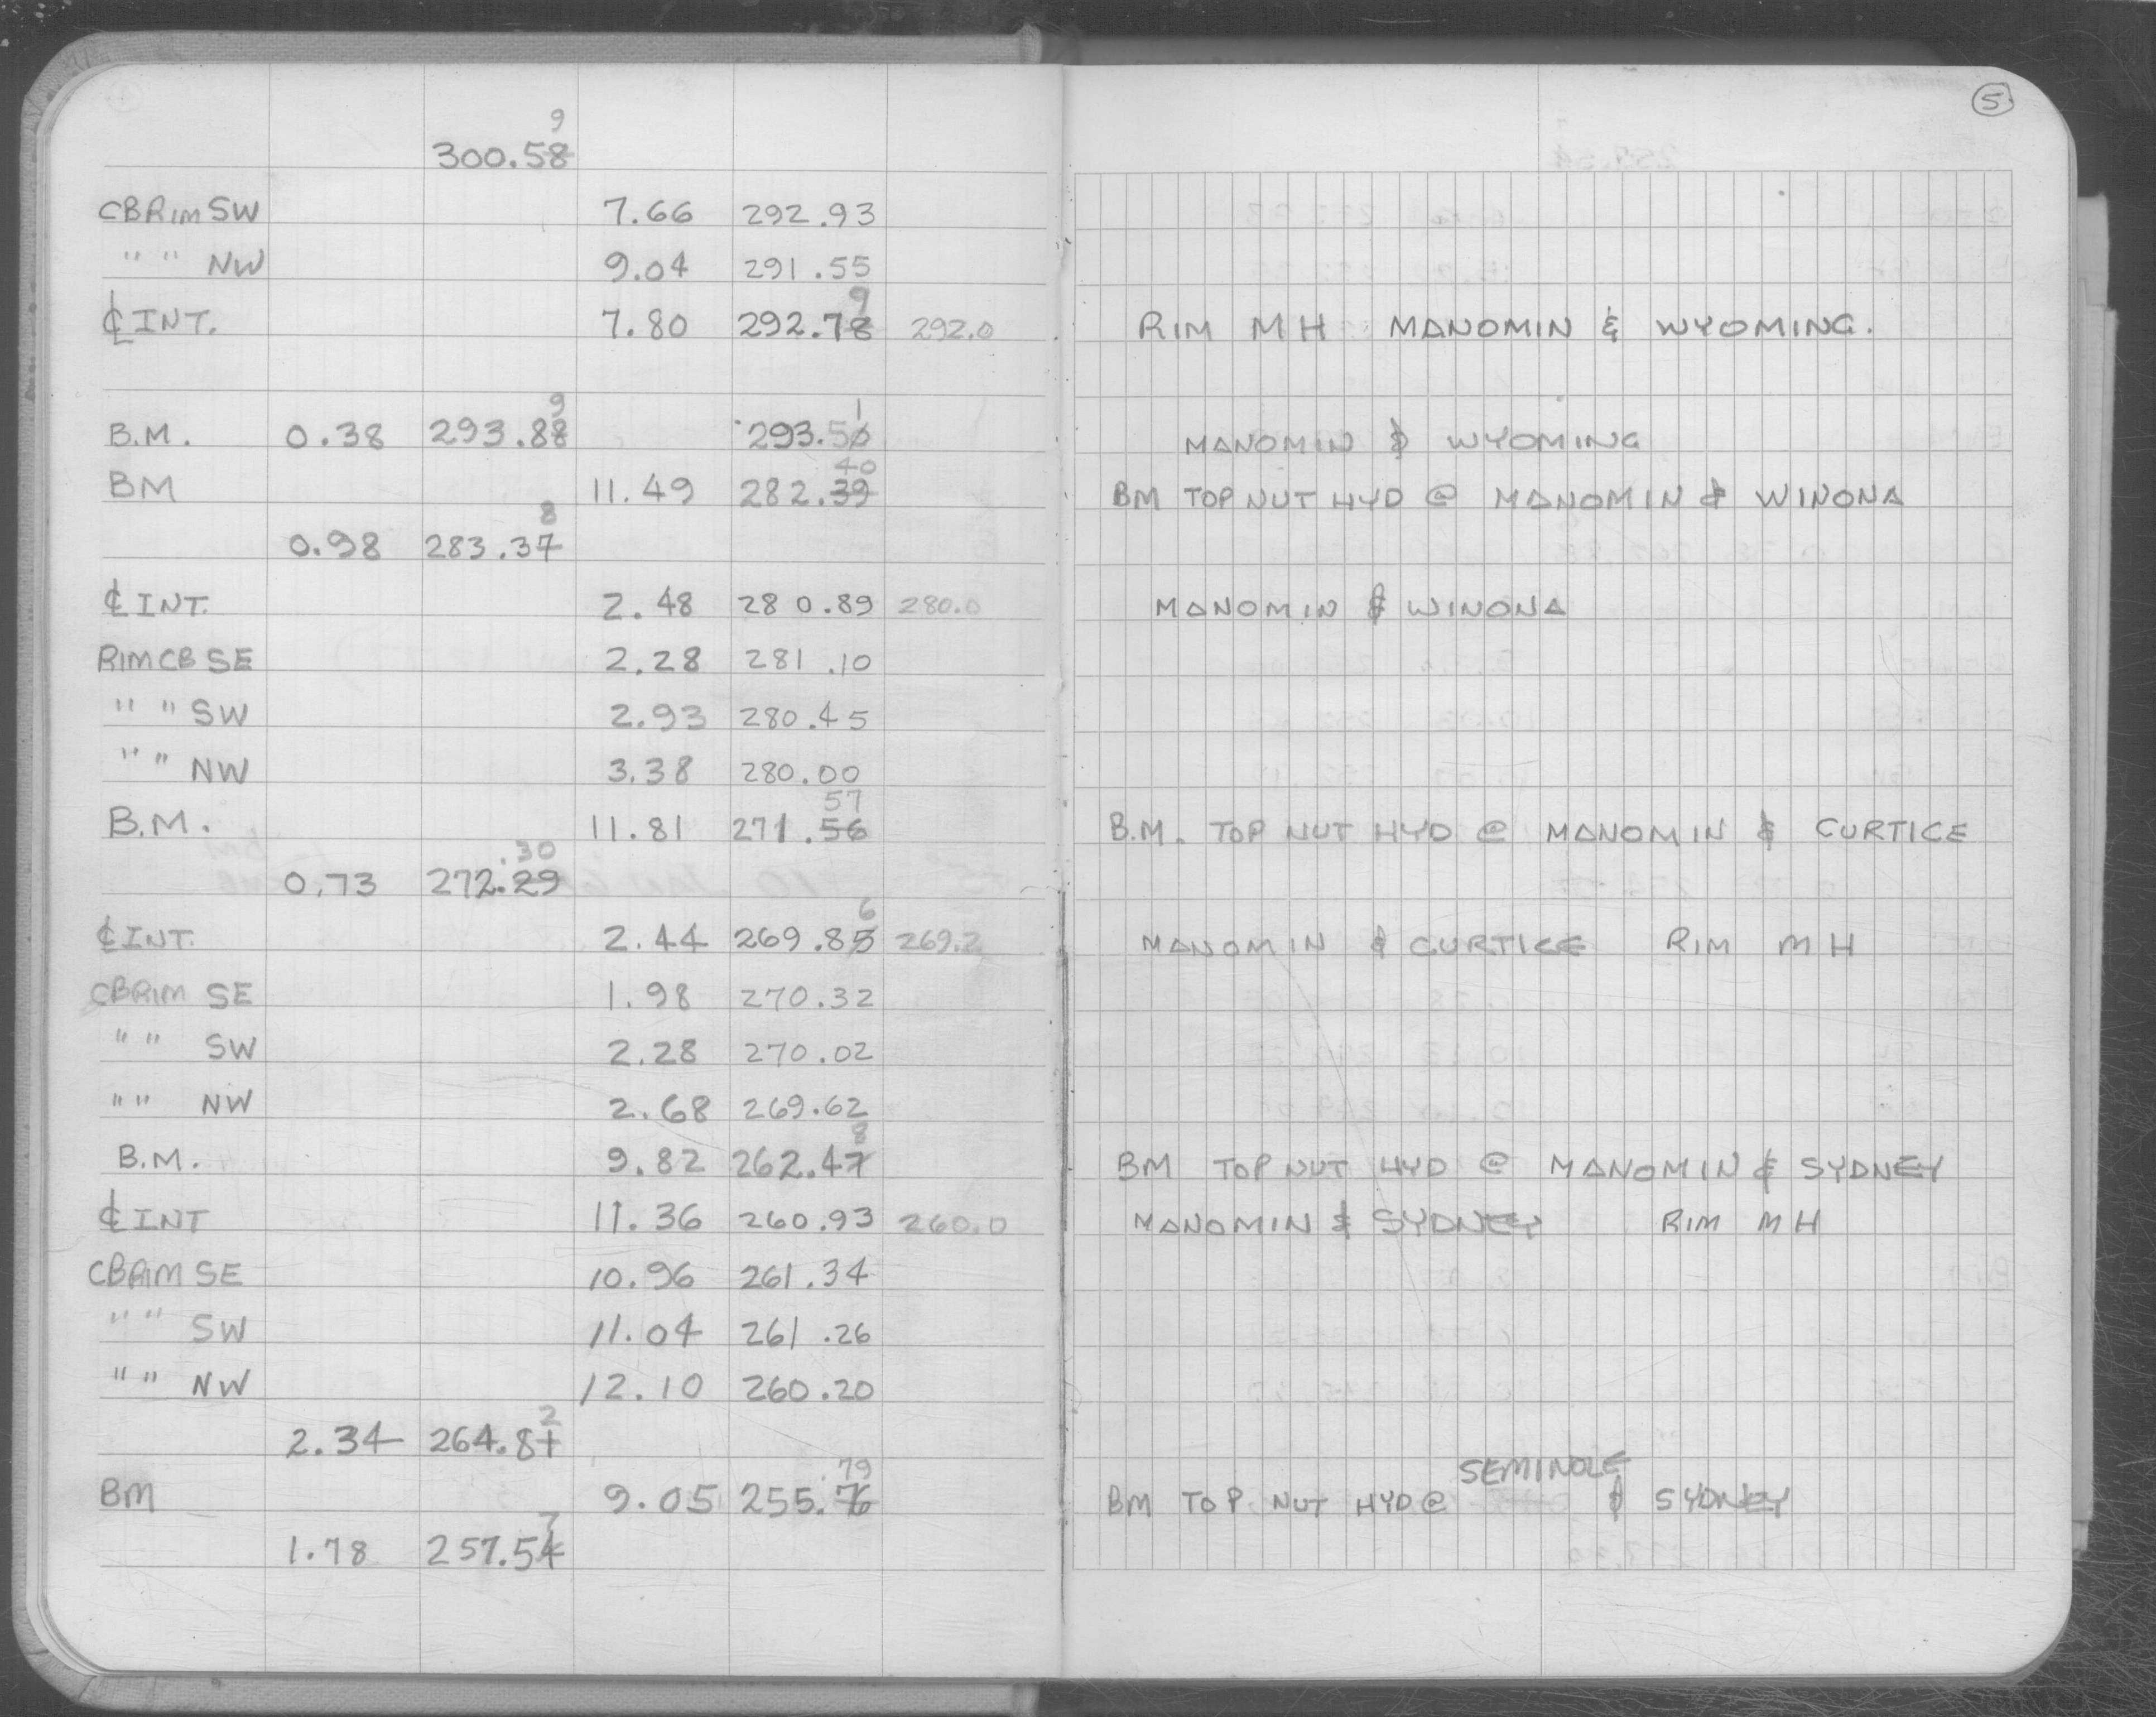 5
300.58 9
CBRIM SW 7.66 292.93
" " NW 9.04 291.55
℄ INT. 7.80 292.78 9 292.0 RIM MH MANOMIN & WYOMING.
B.M. 0.38 293.88 9 293.50 1 MANOMIN & WYOMING
BM 11.49 282.39 40 BM TOP NUT HYD @ MANOMIN & WINONA
0.98 283.37 8
℄ INT. 2.48 280.89 280.0 MANOMIN & WINONA
RIM CB SE 2.28 281.10
" " SW 2.93 280.45
" " NW 3.38 280.00
B.M. 11.81 271.56 57 B.M. TOP NUT HYD @ MANOMIN & CURTICE
0.73 272.29 .30
℄ INT. 2.44 269.85 6 269.2 MANOMIN & CURTICE RIM MH
CBRIM SE 1.98 270.32
" " SW 2.28 270.02
" " NW 2.68 269.62
B.M. 9.82 262.47 8 BM TOP NUT HYD @ MANOMIN & SYDNEY
℄ INT 11.36 260.93 260.0 MANOMIN & SYDNEY RIM MH
CBRIM SE 10.96 261.34
" " SW 11.04 261.26
" " NW 12.10 260.20
2.34 264.81 2
BM 9.05 255.76 79 BM TOP NUT HYD @ SEMINOLE & SYDNEY
1.78 257.54 7